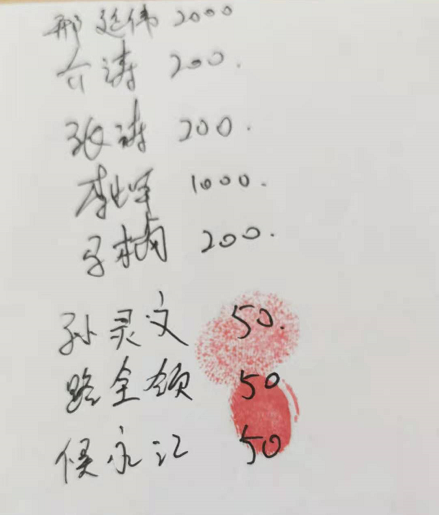 邢延伟 2000
涛 200.
张涛 200.
李 1000.
200.
孙灵文 50.
路全领 50
侯永江 50